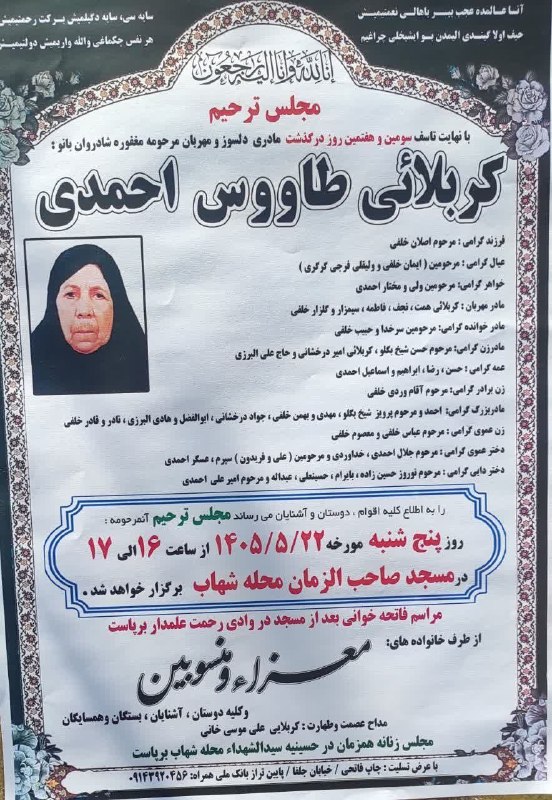 آنا عالمده عجب بیر باهالی نعمتیمیش
سایه سی، سایه دگیلمیش برکت رحمتیمیش
حیف اولا گیندی الیمدن بو ایشیخلی چراغیم
هر نفس چکماغی والله واریمیش دولتیمیش
إنا لله وإنا إليه راجعون
مجلس ترحیم
با نهایت تاسف سومین و هفتمین روز درگذشت مادری دلسوز و مهربان مرحومه مغفوره شادروان بانو :
کربلائی طاووس احمدی
فرزند گرامی : مرحوم اصلان خلفی
عیال گرامی : مرحومین ( ایمان خلفی و ولیقلی فرجی گرگری )
خواهر گرامی: مرحومین ولی و مختار احمدی
مادر مهربان : کربلائی همت ، نجف ، فاطمه ، سیمزار و گلزار خلفی
مادر خوانده گرامی: مرحومین سرخدا و حبیب خلفی
مادرزن گرامی: مرحوم حسن شیخ بگلو ، کربلائی امیر درخشانی و حاج علی البرزی
عمه گرامی : حسن ، رضا ، ابراهیم و اسماعیل احمدی
زن برادر گرامی: مرحوم آقام وردی خلفی
مادربزرگ گرامی: احمد و مرحوم پرویز شیخ بگلو ، مهدی و بهمن خلفی ، جواد درخشانی ، ابوالفضل و هادی البرزی ، نادر و قادر خلفی
زن عموی گرامی : مرحوم عباس خلفی و معصوم خلفی
دختر عموی گرامی : مرحوم جلال احمدی ، خداوردی و مرحومین ( علی و فریدون ) سپرم ، عسگر احمدی
دختر دایی گرامی : مرحوم نوروز حسین زاده ، بایرام ، حسینعلی ، عبداله و مرحوم امیر علی احمدی
را به اطلاع کلیه اقوام ، دوستان و آشنایان می رساند مجلس ترحیم آنمرحومه :
روز پنج شنبه مورخه ۱۴۰۵/۵/۲۲ از ساعت ۱۶ الی ۱۷
در مسجد صاحب الزمان محله شهاب برگزار خواهد شد .
مراسم فاتحه خوانی بعد از مسجد در وادی رحمت علمدار برپاست
از طرف خانواده های:
معزاء و منسوبین
وکلیه دوستان ، آشنایان ، بستگان وهمسایگان
مداح عصمت وطهارت : کربلایی علی موسی خانی
مجلس زنانه همزمان در حسینیه سیدالشهداء محله شهاب برپاست
با عرض تسلیت : چاپ فاتحی / خیابان جلفا / پایین تراز بانک ملی همراه: ۰۹۱۴۳۹۲۰۴۵۶